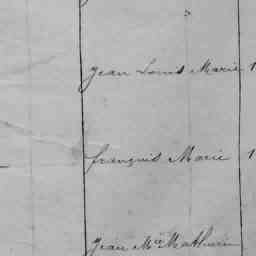 Jean Louis Marie 1
françois Marie 1
Jean Mie Mathurin